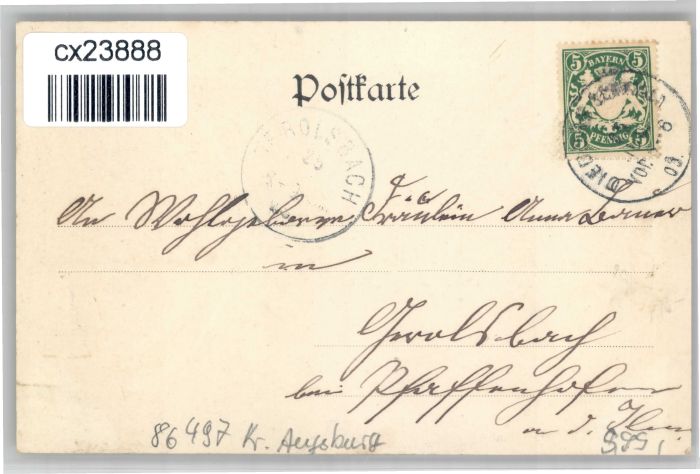 cx23888
Postkarte
5 BAYERN 5
5 PFENNIG 5
GEROLSBACH
An Wohlgeborne Fräulein Anna
in
Gerolsbach
bei Pfaffenhofen
a. d. Ilm
86497 Kr. Augsburg